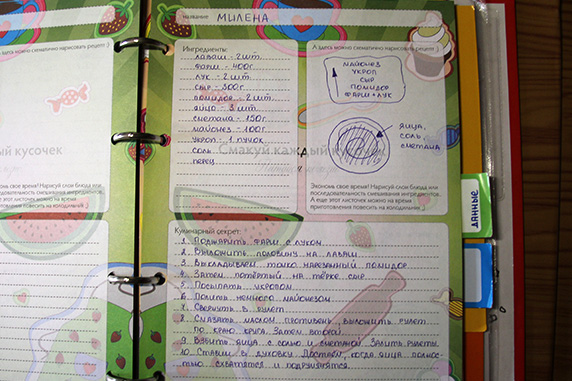 название МИЛЕНА
Ингредиенты:
ЛАВАШ - 2 ШТ.
ФАРШ - 400г
ЛУК - 2 ШТ.
СЫР - 300г
ПОМИДОР - 2 ШТ.
ЯЙЦО - 3 ШТ
СМЕТАНА - 150г
МАЙОНЕЗ - 100г
УКРОП - 1 ПУЧОК
СОЛЬ
ПЕРЕЦ
А здесь можно схематично нарисовать рецепт :)
МАЙОНЕЗ
УКРОП
СЫР
ПОМИДОР
ФАРШ + ЛУК
ЯЙЦА,
СОЛЬ,
СМЕТАНА
Смакуй каждый кусочек
Экономь свое время! Нарисуй слои блюда или
последовательность смешивания ингредиентов.
А еще этот листочек можно на время
приготовления повесить на холодильник!
Кулинарный секрет:
1. ПОДЖАРИТЬ ФАРШ С ЛУКОМ
2. ВЫЛОЖИТЬ ПОЛОВИНУ НА ЛАВАШ
3. ВЫКЛАДЫВАЕМ ТОНКО НАРЕЗАННЫЙ ПОМИДОР
4. ЗАТЕМ ПОТЁРТЫЙ НА ТЁРКЕ СЫР
5. ПОСЫПАТЬ УКРОПОМ
6. ПОЛИТЬ НЕМНОГО МАЙОНЕЗОМ
7. СВЕРНУТЬ В РУЛЕТ
8. СМАЗАТЬ МАСЛОМ ПРОТИВЕНЬ, ВЫЛОЖИТЬ РУЛЕТ
ПО КРАЮ КРУГА. ЗАТЕМ ВТОРОЙ
9. ВЗБИТЬ ЯЙЦА С СОЛЬЮ И СМЕТАНОЙ. ЗАЛИТЬ РУЛЕТЫ.
10. СТАВИМ В ДУХОВКУ. ДОСТАЁМ, КОГДА ЯЙЦА ПОЛНОС-
ТЬЮ СХВАТЯТСЯ И ПОДРУМЯНЯТСЯ.
а здесь можно схематично нарисовать рецепт :)
ый кусочек
Экономь свое время! Нарисуй слои блюда или
последовательность смешивания ингредиентов.
А еще этот листочек можно на время
приготовления повесить на холодильник!
ДАННЫЕ